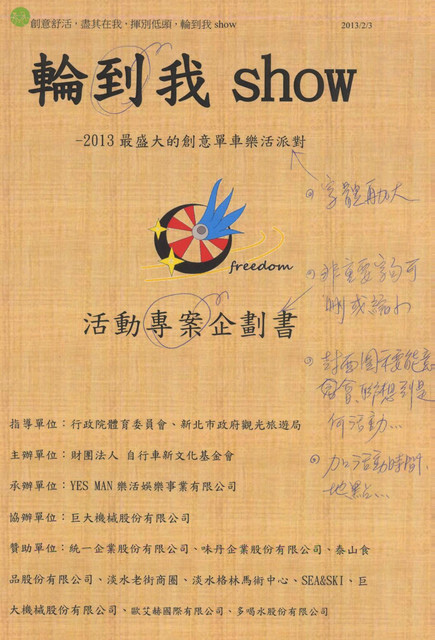 創意舒活，盡其在我，揮別低頭，輪到我 show
2013/2/3
輪到我 show
-2013 最盛大的創意單車樂活派對
字體再加大
freedom
非重要字句可
刪或縮小
活動專案企劃書
封面圖要能意
會,聯想到是
何活動...
加活動時間,
地點...
指導單位：行政院體育委員會、新北市政府觀光旅遊局
主辦單位：財團法人 自行車新文化基金會
承辦單位：YES MAN 樂活娛樂事業有限公司
協辦單位：巨大機械股份有限公司
贊助單位：統一企業股份有限公司、味丹企業股份有限公司、泰山食
品股份有限公司、淡水老街商圈、淡水格林馬術中心、SEA&SKI、巨
大機械股份有限公司、歐艾赫國際有限公司、多喝水股份有限公司